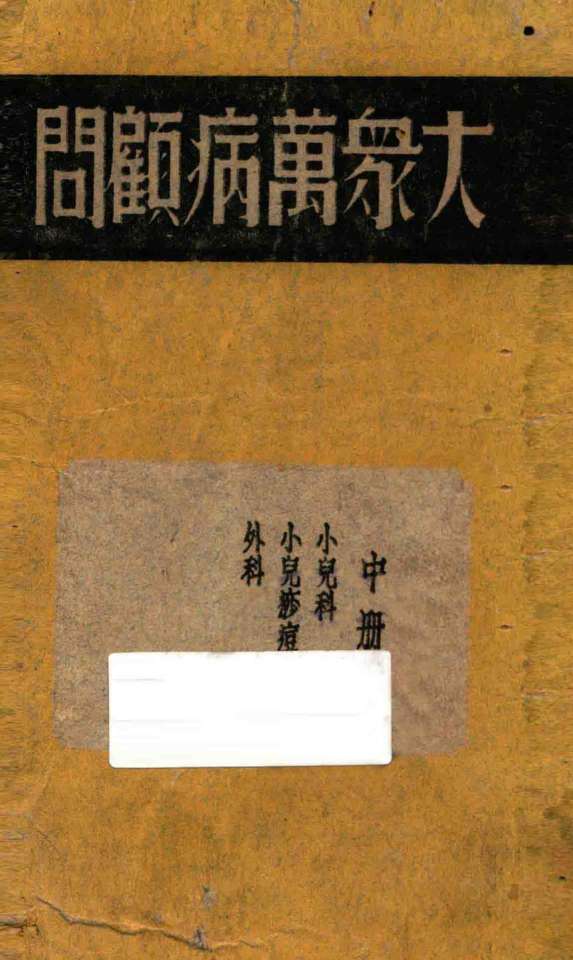 大眾萬病顧問
中册
小兒科
小兒痧痘
外科